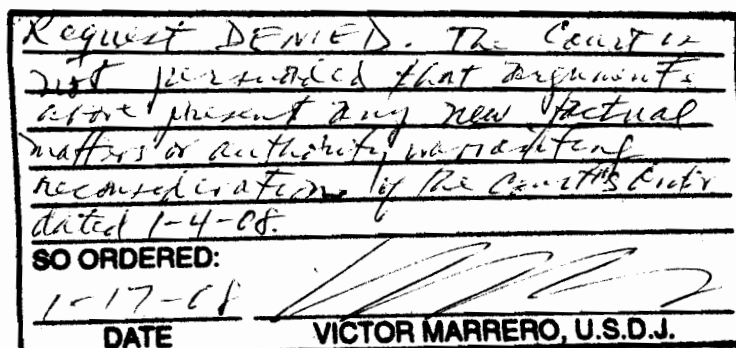 Request DENIED. The Court is
not persuaded that arguments
above present any new factual
matters or authority warranting
reconsideration of the Court's Order
dated 1-4-08.
SO ORDERED:
1-17-08
DATE VICTOR MARRERO, U.S.D.J.